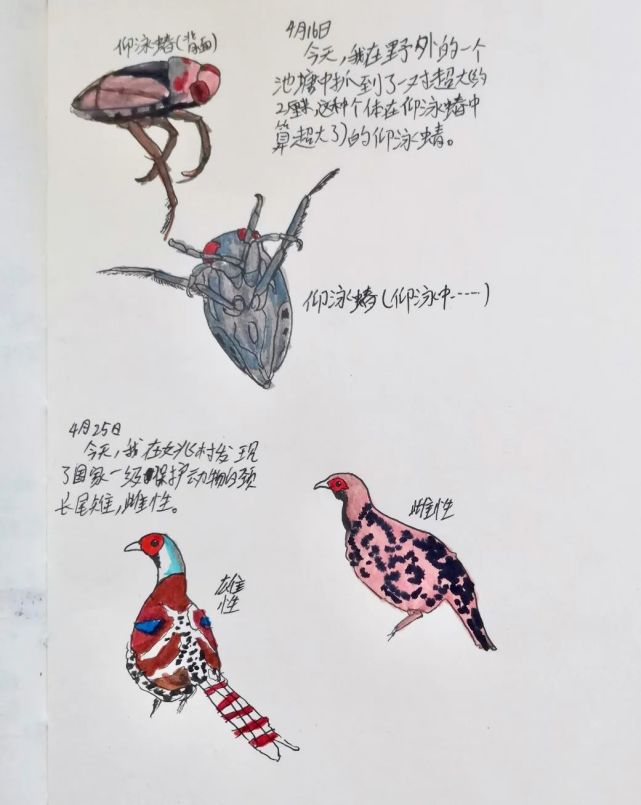 仰泳蝽(背面)
4月16日
今天,我在野外的一个
池塘中扒到了一对超大(约
2厘米,这种个体在仰泳蝽中
算超大了)的仰泳蝽。
仰泳蝽(仰泳中……)
4月25日
今天,我在姚村发现
了国家一级保护动物白颈
长尾雉,雌性。
雄性
雌性